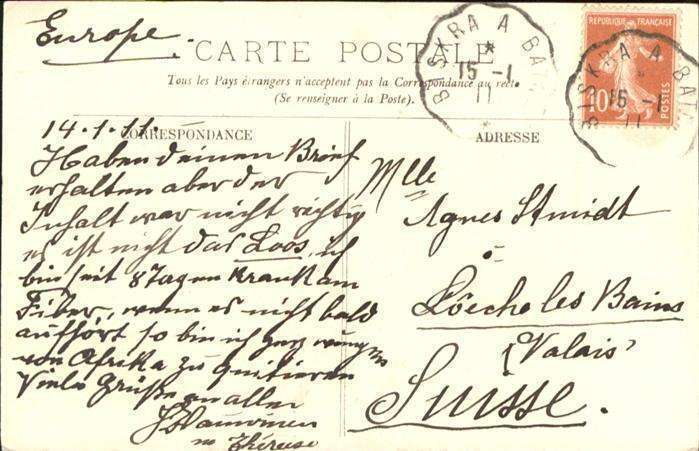 Europe.
CARTE POSTALE
Tous les Pays étrangers n'acceptent pas la Correspondance au recto
(Se renseigner à la Poste).
BISKRA A BAT
15 -1
11
REPUBLIQUE FRANÇAISE
10
POSTES
BISKRA A BAT
15 -1
11
CORRESPONDANCE
14.1.11.
Haben deinen Brief
erhalten aber der
Inhalt war nicht richtig
es ist nicht das Loos, ich
bin seit 8 Tagen Krank am
Fiber, wenn es nicht bald
aufhört so bin ich gezwungen
von Afrika zu quitieren
Viele Grüße an alle
Thérèse
ADRESSE
Mlle
Agnes Stmidt
Loèche les Bains
(Valais)
Suisse.